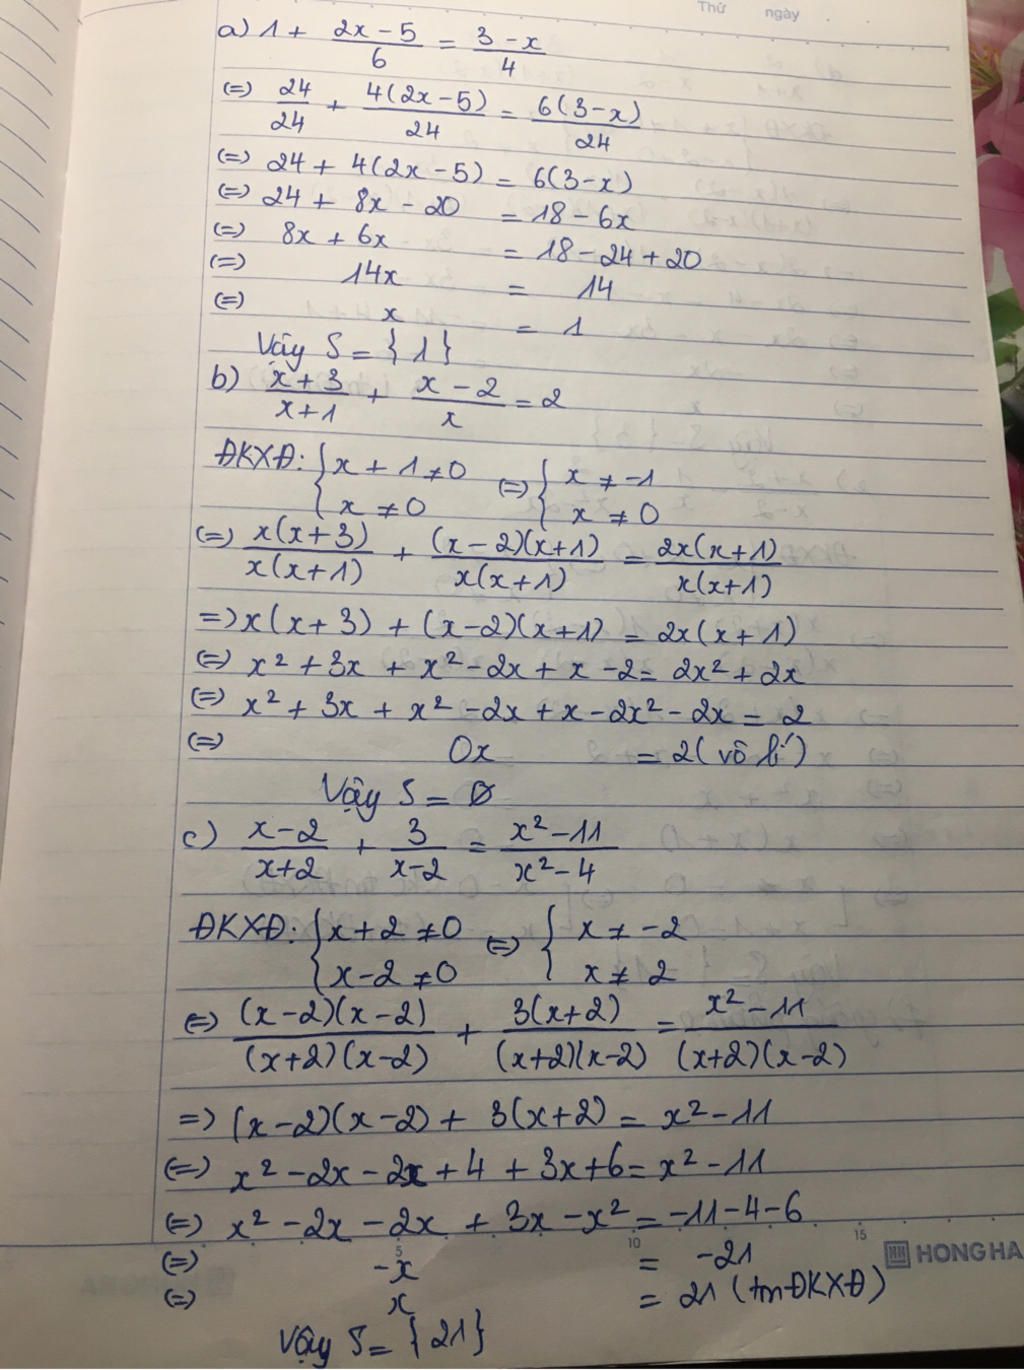 Thứ ngày
a) 1 + (2x - 5)/6 = (3 - x)/4
(=) 24/24 + 4(2x - 5)/24 = 6(3 - x)/24
(=) 24 + 4(2x - 5) = 6(3 - x)
(=) 24 + 8x - 20 = 18 - 6x
(=) 8x + 6x = 18 - 24 + 20
(=) 14x = 14
(=) x = 1
Vậy S = {1}
b) (x + 3)/(x + 1) + (x - 2)/x = 2
ĐKXĐ: { x + 1 ≠ 0 (=) { x ≠ -1
{ x ≠ 0 { x ≠ 0
(=) x(x + 3)/x(x + 1) + (x - 2)(x + 1)/x(x + 1) = 2x(x + 1)/x(x + 1)
=) x(x + 3) + (x - 2)(x + 1) = 2x(x + 1)
(=) x² + 3x + x² - 2x + x - 2 = 2x² + 2x
(=) x² + 3x + x² - 2x + x - 2x² - 2x = 2
(=) 0x = 2 (vô lí)
Vậy S = ∅
c) (x - 2)/(x + 2) + 3/(x - 2) = (x² - 11)/(x² - 4)
ĐKXĐ: { x + 2 ≠ 0 (=) { x ≠ -2
{ x - 2 ≠ 0 { x ≠ 2
(=) (x - 2)(x - 2)/(x + 2)(x - 2) + 3(x + 2)/(x + 2)(x - 2) = (x² - 11)/(x + 2)(x - 2)
=) (x - 2)(x - 2) + 3(x + 2) = x² - 11
(=) x² - 2x - 2x + 4 + 3x + 6 = x² - 11
(=) x² - 2x - 2x + 3x - x² = -11 - 4 - 6
5 10 15
HONG HA
(=) -x = -21
(=) x = 21 (tm ĐKXĐ)
Vậy S = {21}